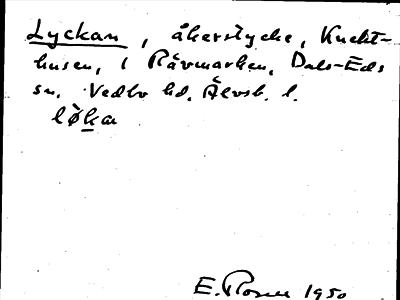 Lyckan, åkerstycke, Knekt-
husen, i Rävmarken, Dals-Eds
sn. Vedbo hd. Älvsb. l.
lø̀ka
E. Rosell 1950